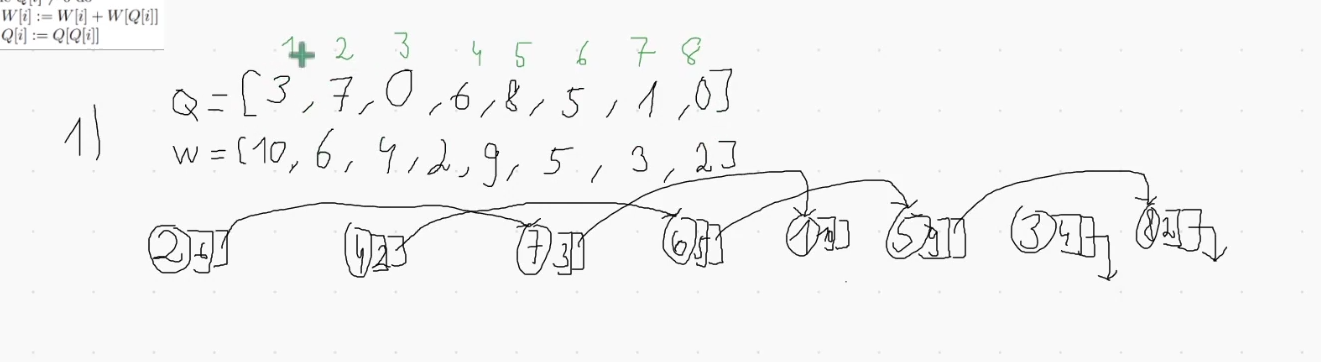 W[i] := W[i] + W[Q[i]]
Q[i] := Q[Q[i]]
1 2 3 4 5 6 7 8
Q = [3, 7, 0, 6, 8, 5, 1, 0]
1)
W = [10, 6, 4, 2, 9, 5, 3, 2]
2 6 4 2 7 3 6 5 1 10 5 9 3 4 8 2